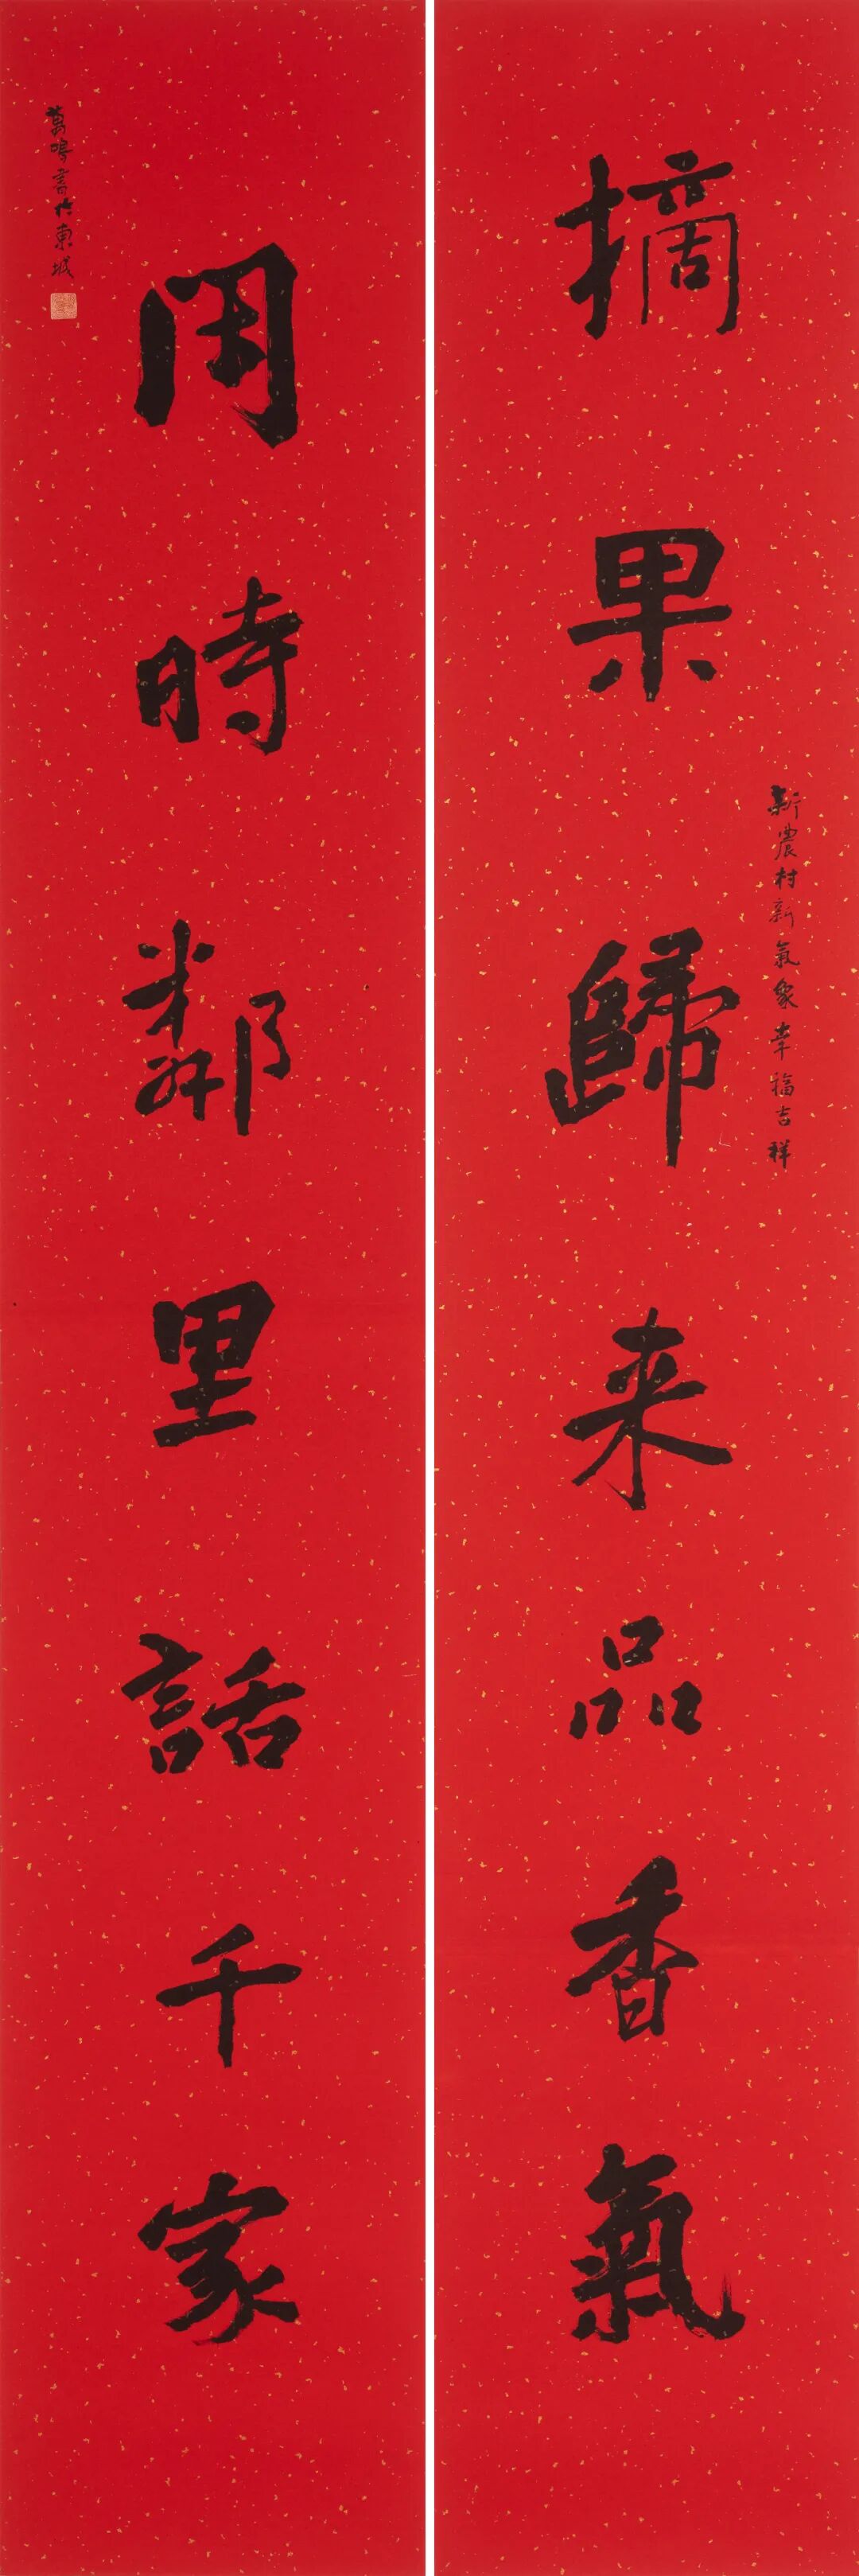 新農村新氣象幸福吉祥
摘果歸来品香氣
閑時鄰里話千家
葛鳴書於東城